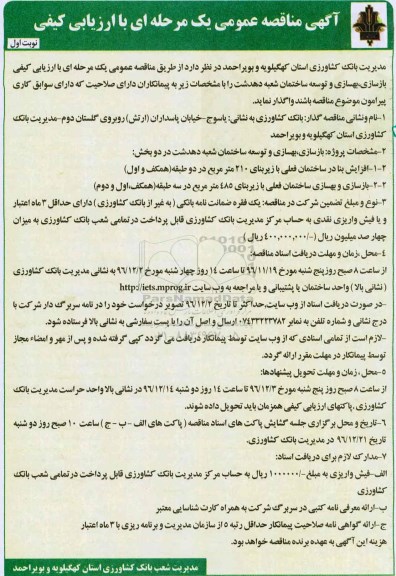 آگهی مناقصه عمومی یک مرحله ای با ارزیابی کیفی
نوبت اول
مدیریت بانک کشاورزی استان کهگیلویه و بویراحمد در نظر دارد از طریق مناقصه عمومی یک مرحله ای با ارزیابی کیفی
بازسازی،بهسازی و توسعه ساختمان شعبه دهدشت را با مشخصات زیر به پیمانکاران دارای صلاحیت که دارای سوابق کاری
پیرامون موضوع مناقصه باشند واگذار نماید.
۱-نام ونشانی مناقصه گذار: بانک کشاورزی به نشانی: یاسوج-خیابان پاسداران (ارتش) روبروی گلستان دوم-مدیریت بانک
کشاورزی استان کهگیلویه و بویراحمد
۲-مشخصات پروژه: بازسازی،بهسازی و توسعه ساختمان شعبه دهدشت در دو بخش:
۲-۱-افزایش بنا در ساختمان فعلی با زیربنای ۲۱۰ متر مربع در دو طبقه(همکف و اول)
۲-۲-بازسازی و بهسازی ساختمان فعلی با زیربنای ۴۸۵ متر مربع در سه طبقه(همکف،اول و دوم)
۳-نوع و مبلغ تضمین شرکت در مناقصه: یک فقره ضمانت نامه بانکی (به غیر از بانک کشاورزی) دارای حداقل ۳ ماه اعتبار
و یا فیش واریزی نقدی به حساب مرکز مدیریت بانک کشاورزی قابل پرداخت در تمامی شعب بانک کشاورزی به میزان
چهار صد میلیون ریال (-/۴۰۰,۰۰۰,۰۰۰ ریال)
۴-محل ،زمان و مهلت دریافت اسناد مناقصه:
از ساعت ۸ صبح روز پنج شنبه مورخ ۹۶/۱۱/۱۹ تا ساعت ۱۴ روز چهار شنبه مورخ ۹۶/۱۲/۲ به نشانی مدیریت بانک کشاورزی
(نشانی بالا) واحد ساختمان یا پشتیبانی و یا مراجعه به وب سایت http://iets.mprog.ir
-در صورت دریافت اسناد از وب سایت،حداکثر تا تاریخ ۹۶/۱۲/۲ تصویر درخواست خود را در نامه سربرگ دار شرکت با
درج نشانی و شماره تلفن به نمابر ۰۷۴۳۳۲۲۳۷۸۲ ارسال و اصل آن را با پست سفارشی به نشانی بالا فرستاده شود.
-لازم است از تمامی اسنادی که از وب سایت توسط پیمانکار دریافت می گردد کپی گرفته شده و پس از مهر و امضاء مجاز
توسط پیمانکار در مهلت مقرر ارائه گردد.
۵-محل ، زمان و مهلت تحویل پیشنهادها:
از ساعت ۸ صبح روز پنج شنبه مورخ ۹۶/۱۲/۳ تا ساعت ۱۴ روز دو شنبه ۹۶/۱۲/۱۴ در نشانی بالا واحد حراست مدیریت بانک
کشاورزی ،پاکتهای ارزیابی کیفی همزمان باید تحویل داده شوند.
۶-تاریخ و محل برگزاری جلسه گشایش پاکت های اسناد مناقصه (پاکت های الف - ب - ج) ساعت ۱۰ صبح روز دو شنبه
تاریخ ۹۶/۱۲/۲۱ در مدیریت بانک کشاورزی.
۷-مدارک لازم برای دریافت اسناد:
الف-فیش واریزی به مبلغ -/۱۰۰۰۰۰۰ ریال به حساب مرکز مدیریت بانک کشاورزی قابل پرداخت در تمامی شعب بانک
کشاورزی
ب-ارائه معرفی نامه کتبی در سربرگ شرکت به همراه کارت شناسایی معتبر
ج-ارائه گواهی نامه صلاحیت پیمانکار حداقل رتبه ۵ از سازمان مدیریت و برنامه ریزی با ۳ ماه اعتبار
هزینه این آگهی به عهده برنده مناقصه خواهد بود.
مدیریت شعب بانک کشاورزی استان کهگیلویه و بویراحمد